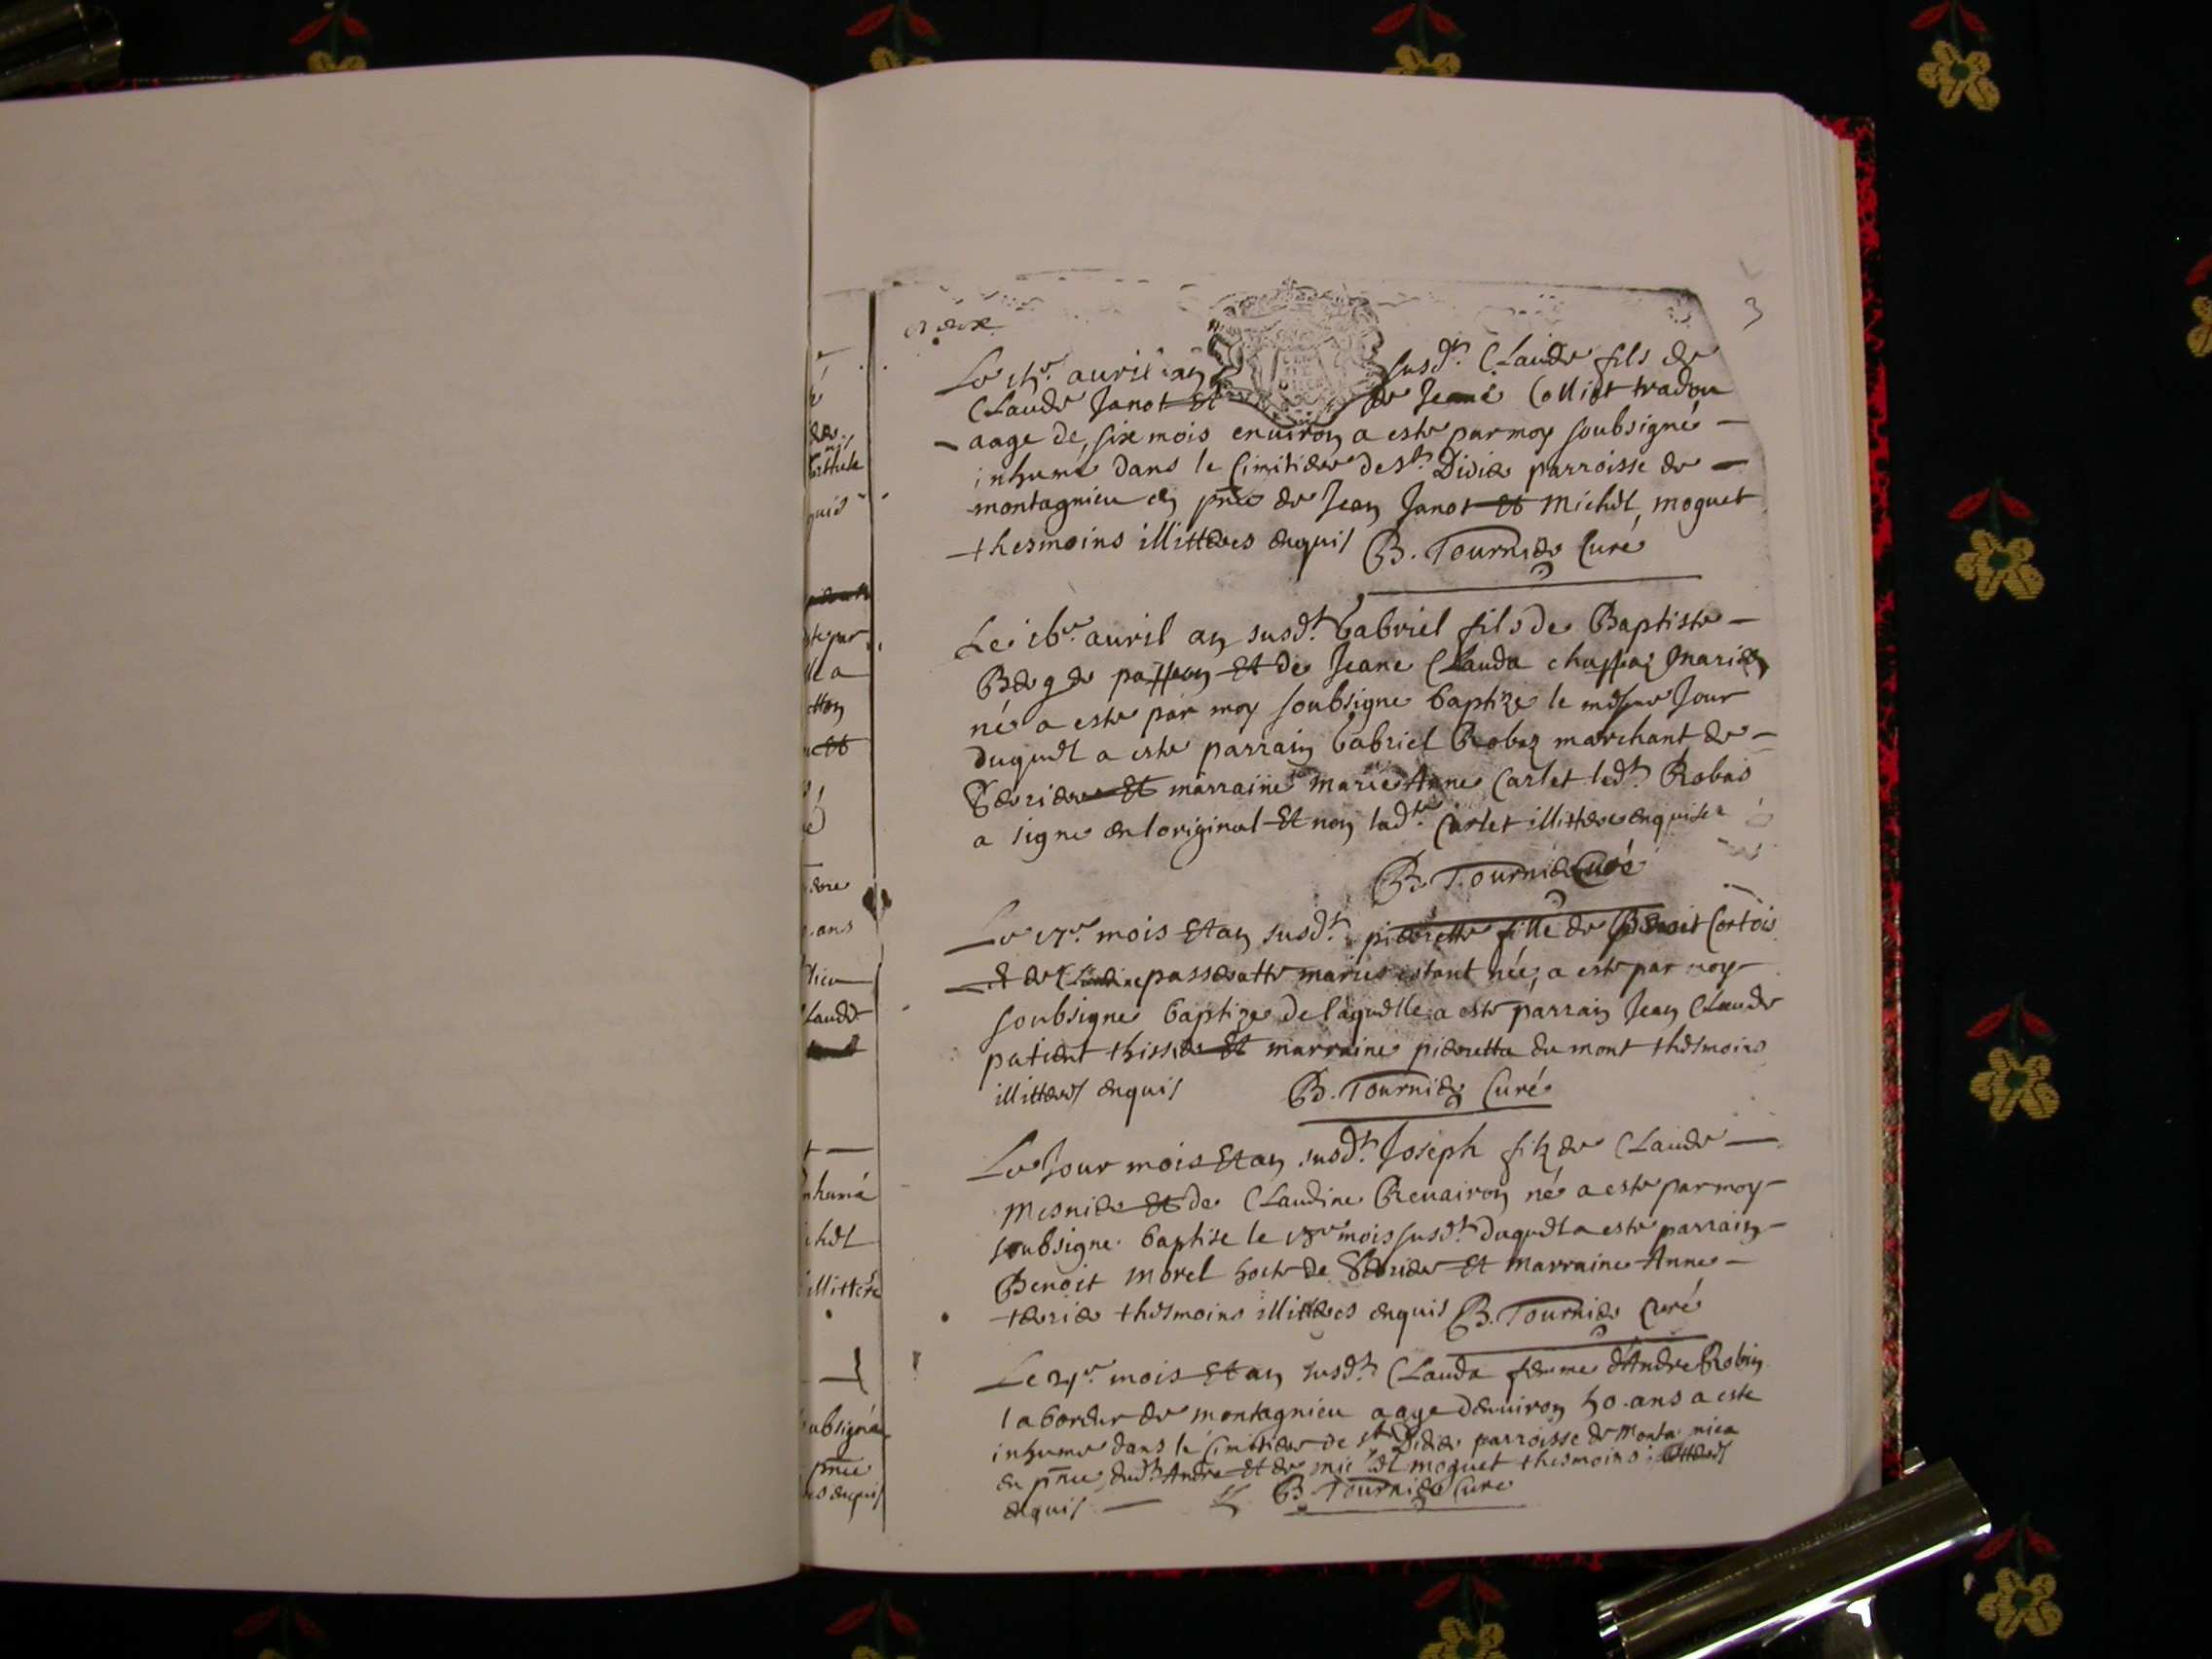 3
Le 15e. auril an susdt. Claude fils de
Claude Janot Et de Jeane Colliet tradou
aage de six mois enuiron a este par moy soubsigné
inhumé dans le Cimitiere de St. Didie parroisse de
montagnieu en pnce de Jean Janot Et Michel moguet
thesmoins illitteres enquis B. Tournier Curé
Le 16e. auril an susdt. Gabriel fils de Baptiste
Berger Et de Jeane Clauda mariez
né a este par moy soubsigne baptize le mesme Jour
duquel a este parrain Gabriel Robez marchant de
Serriere Et marraine marie Anne Carlet ledt. Robais
a signe en loriginal Et non ladte. Carlet illittere enquise
B. Tournier Curé
Le 17e. mois Et an susdt. pierrette fille de Benoit Cortois
et de Claudine passeratte maries estant née, a este par moy
soubsigne baptize de laquelle a este parrain Jean Claude
patient thissier Et marraine pierretta du mont thesmoins
illitteres enquis B. Tournier Curé
Le Jour mois Et an susdt. Joseph filz de Claude
Mesnier Et de Claudine Reuairon né a este par moy
soubsigne baptise le 18e mois susdt. duquel a este parrain
Benoit Morel hoste de Serriere Et Marraine Anne
terrier thesmoins illitteres enquis B. Tournier Curé
Le 21e. mois Et an susdt. Clauda femme d'Andre Robin
laboreur de montagnieu aage denuiron 50. ans a este
inhume dans le Cimitiere de St. Didier parroisse de Montagnieu
en pnce dudt. Andre Et de michel moguet thesmoins illitteres
enquis B. Tournier Cure